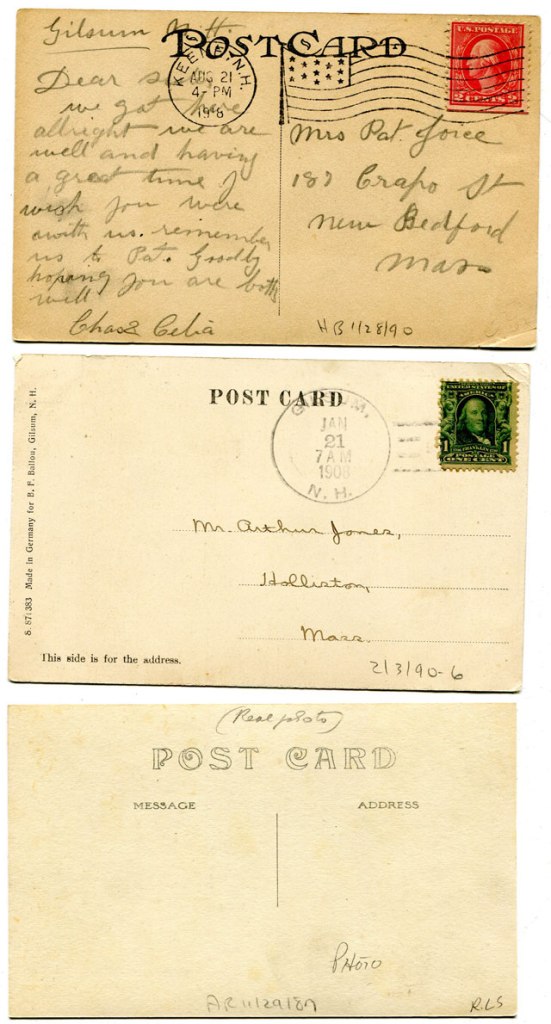 Gilsum N.H.
POST CARD
KEENE, N.H.
AUG 21
4-PM
1918
U.S. POSTAGE
2 CENTS 2
Dear
we got here
allright we are
well and having
a great time I
wish you were
with us. remember
us to Pat. Goodby
hoping you are both
well
Chas & Celia
Mrs Pat. Joice
187 Crapo St
New Bedford
Mass
HB 1/28/90
POST CARD
GILSUM,
JAN
21
7 AM
1908
N. H.
UNITED STATES OF
AMERICA
1 1
POSTAGE
ONE CENT
Mr. Arthur Jones,
Holliston,
Mass.
S. 871383 Made in Germany for B. F. Ballou, Gilsum, N. H.
This side is for the address.
2/3/90-6
(Real photo)
POST CARD
MESSAGE
ADDRESS
PHOTO
AR 11/29/87
R.L.S